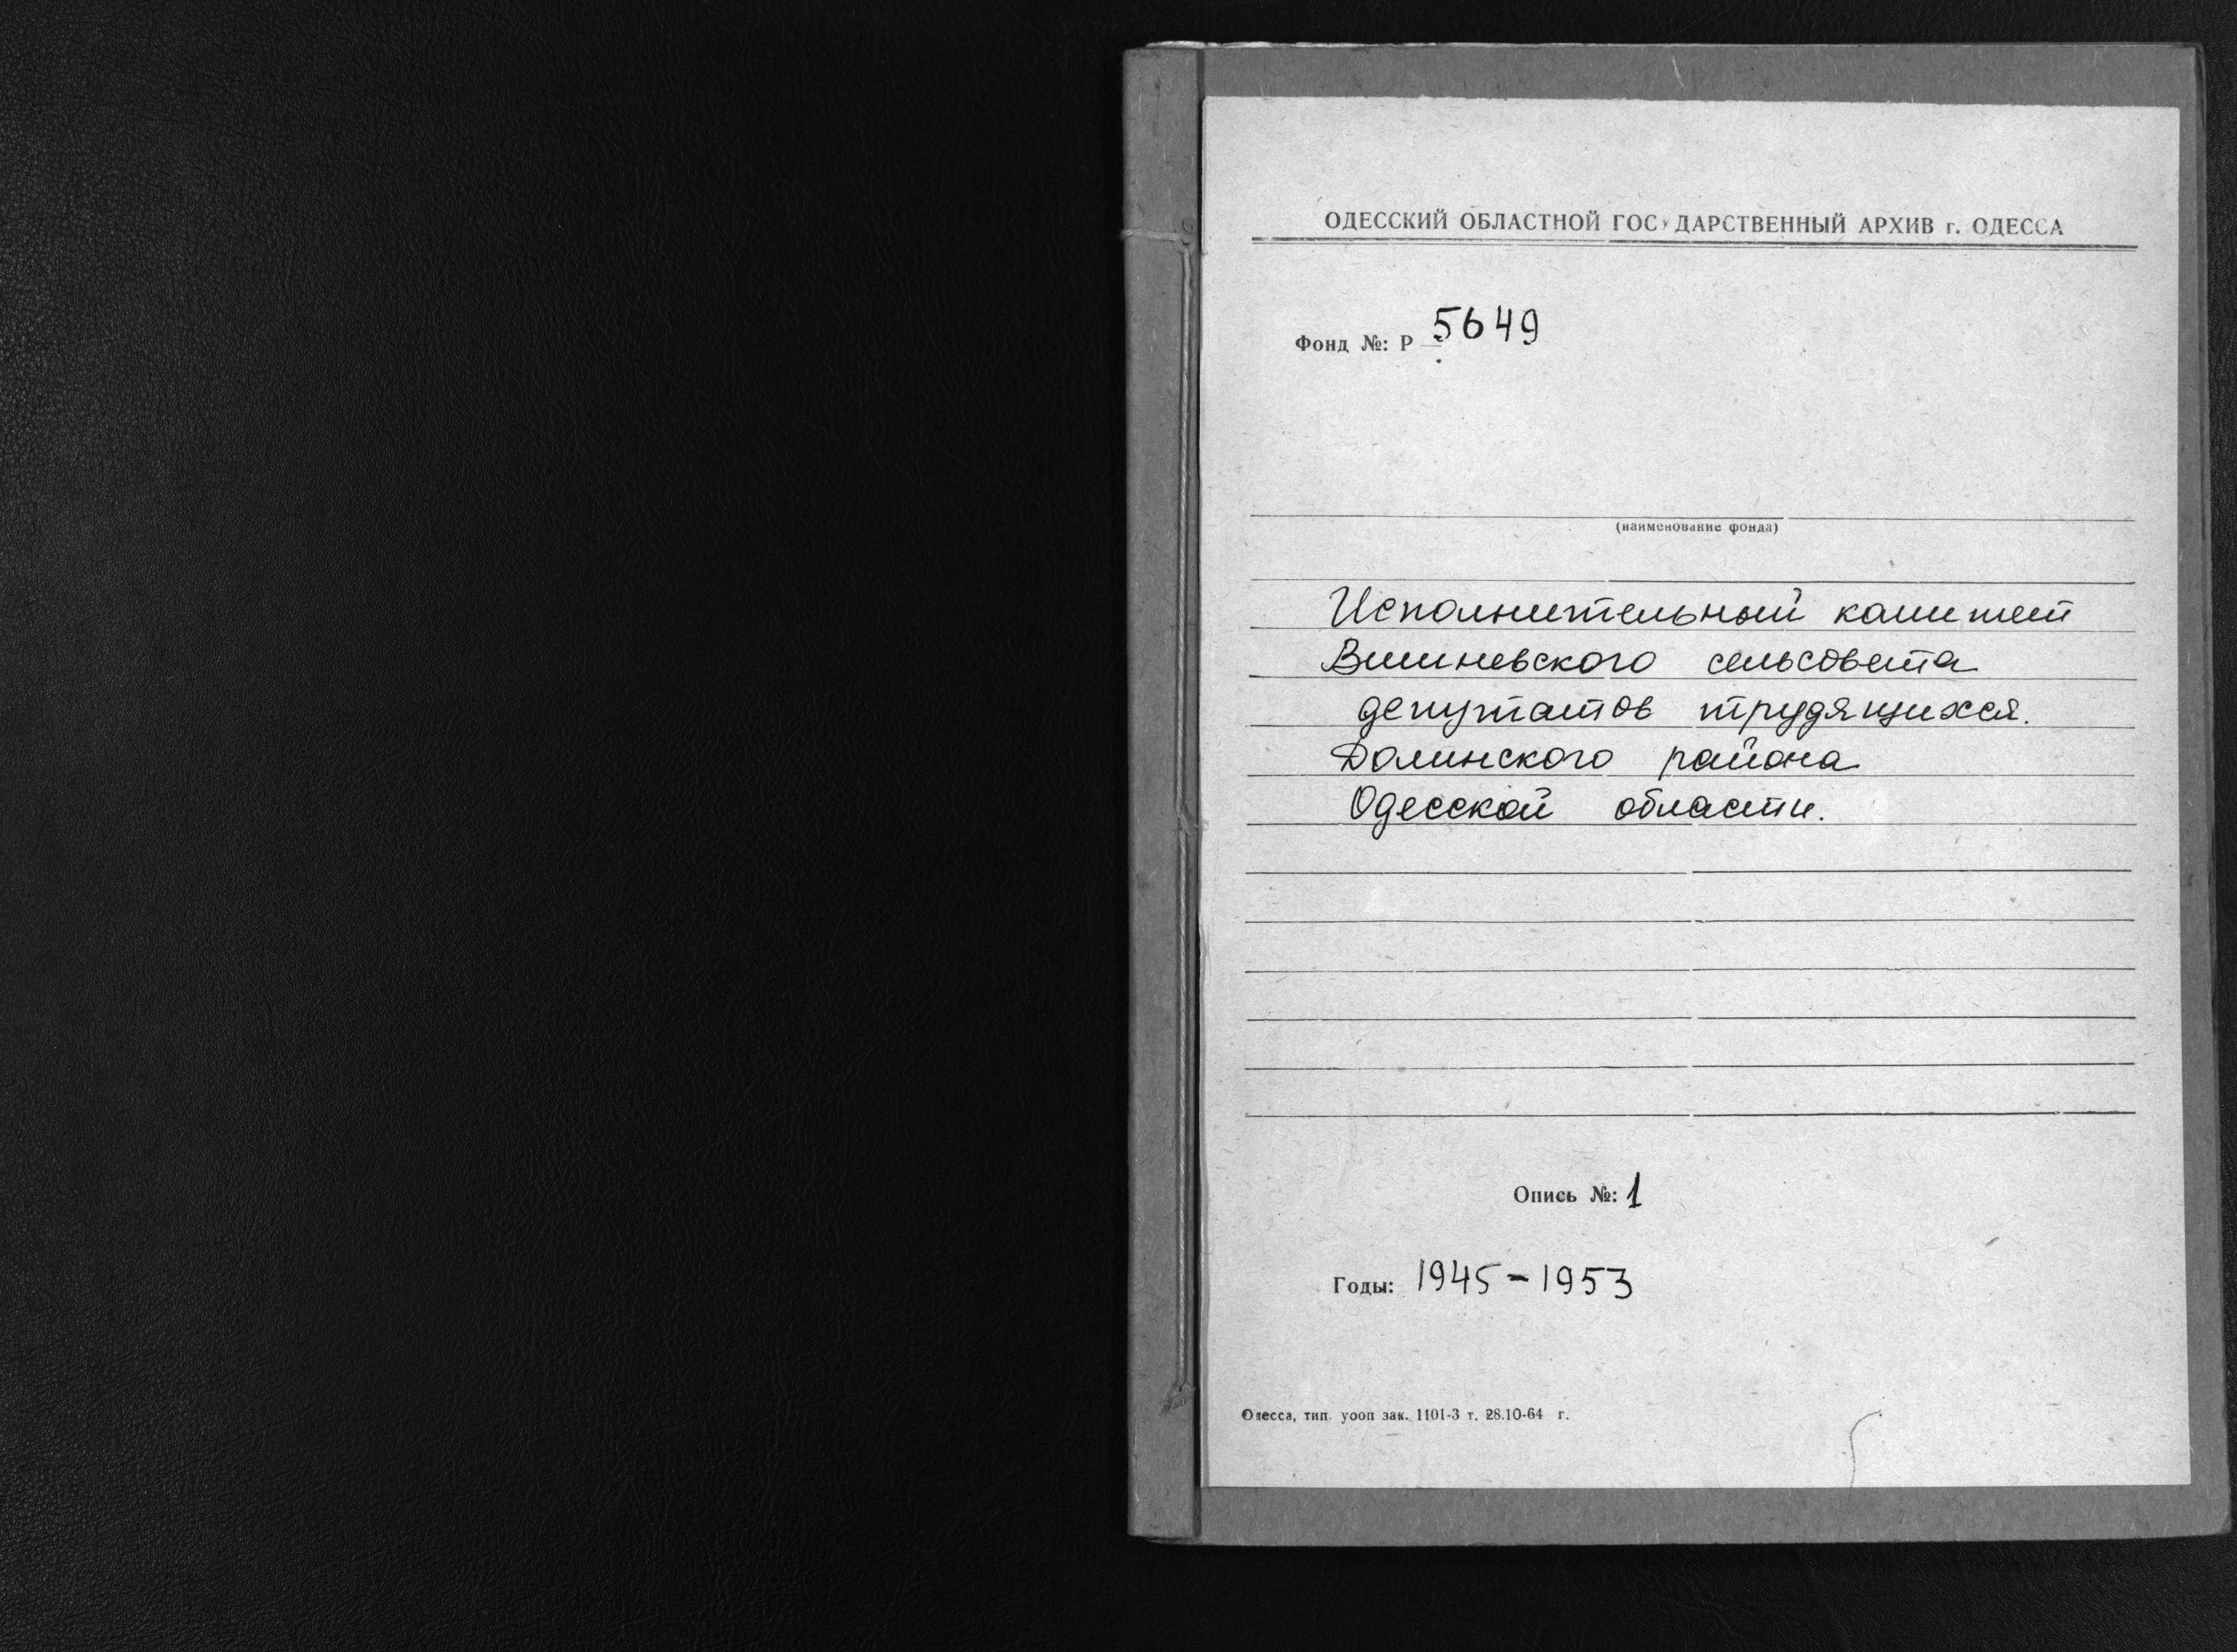 ОДЕССКИЙ ОБЛАСТНОЙ ГОСУДАРСТВЕННЫЙ АРХИВ г. ОДЕССА
Фонд №: Р 5649
(наименование фонда)
Исполнительный комитет
Вишневского сельсовета
депутатов трудящихся.
Долинского района
Одесской области.
Опись №: 1
Годы: 1945-1953
Одесса, тип. уооп зак. 1101-3 т. 28.10-64 г.